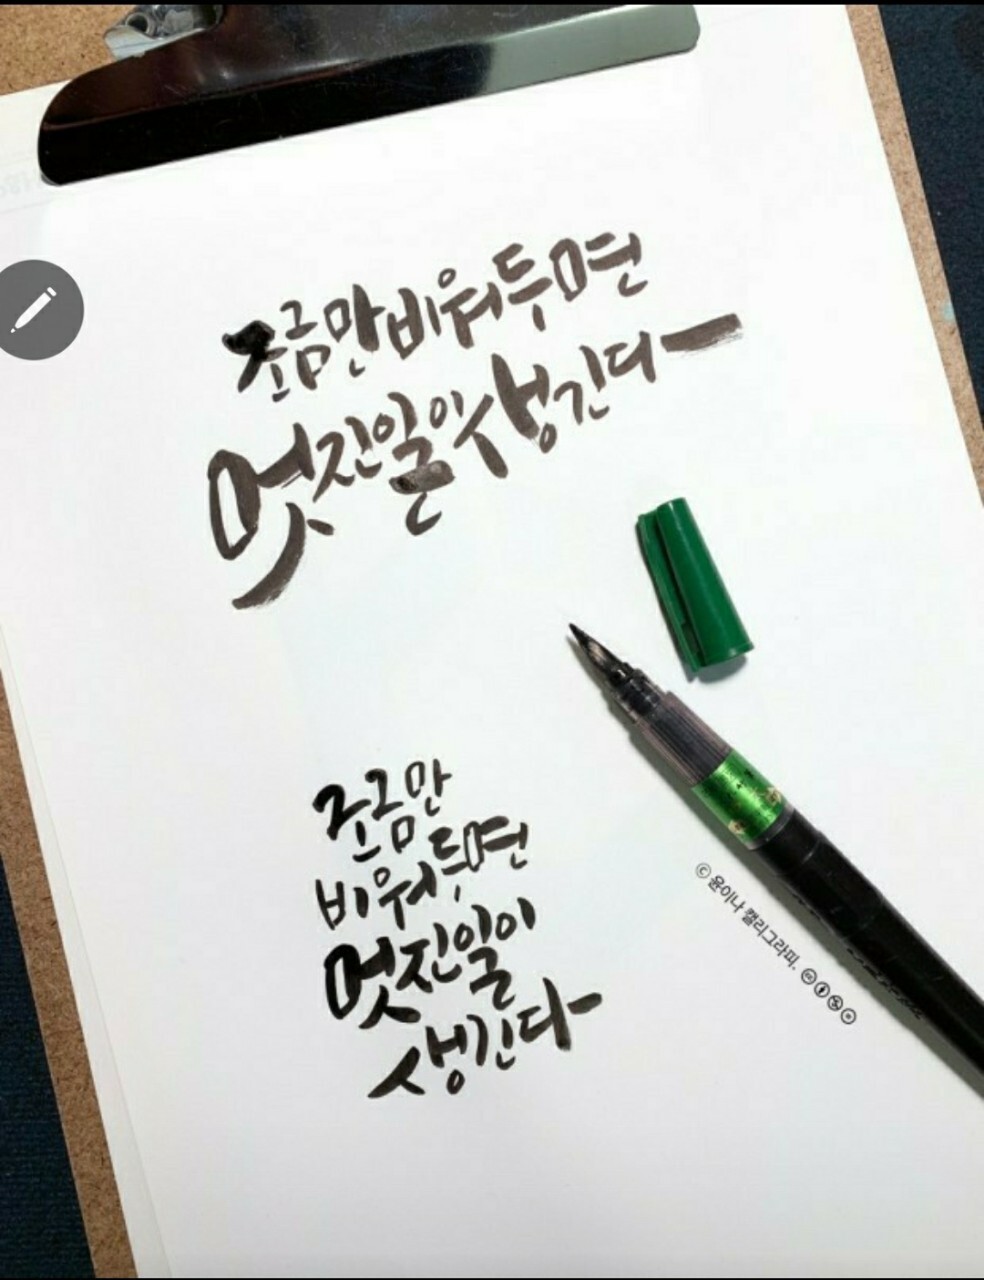 조금만 비워두면
멋진 일이 생긴다
조금만
비워두면
멋진 일이
생긴다
© 윤이나 캘리그라피.